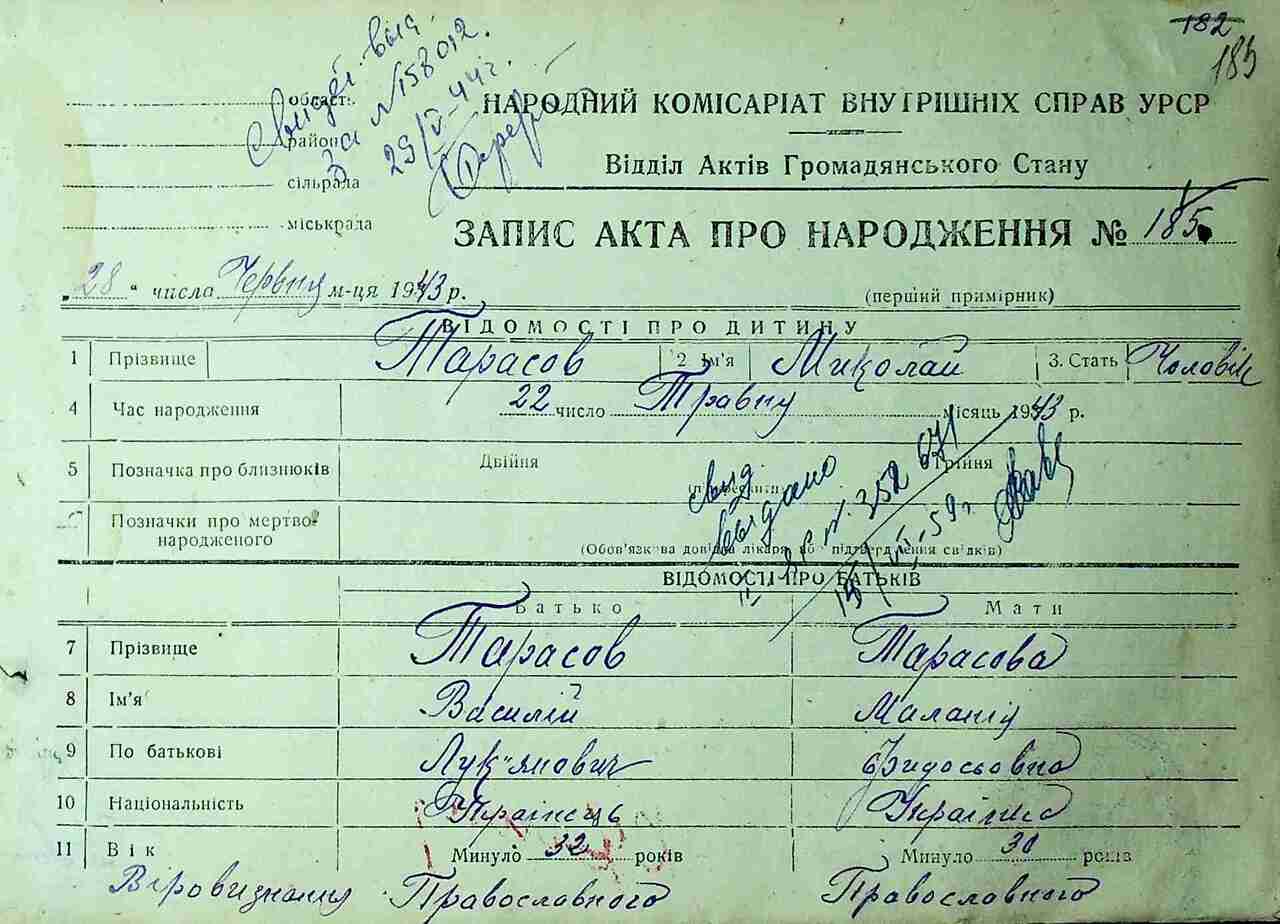 182
185
Свидет. выд
За №158012.
29/V-44 г.
область
район
сільрада
міськрада
НАРОДНИЙ КОМІСАРІАТ ВНУТРІШНІХ СПРАВ УРСР
Відділ Актів Громадянського Стану
ЗАПИС АКТА ПРО НАРОДЖЕННЯ № 185
„28“ числа Червня м-ця 1943 р.
(перший примірник)
ВІДОМОСТІ ПРО ДИТИНУ
1 Прізвище Тарасов 2 Ім'я Миколай 3. Стать Чоловік
4 Час народження 22 число Травну місяць 1943 р.
5 Позначка про близнюків Двійня Трійня
(підкреслити)
Позначки про мертво-
народженого
(Обов'язкова довідка лікаря або підтвердження свідків)
свид
выдано
II № 352671
15/VII-59 г.
ВІДОМОСТІ ПРО БАТЬКІВ
Батько Мати
7 Прізвище Тарасов Тарасова
8 Ім'я Василій Маланія
9 По батькові Лук'янович Фидосьовна
10 Національність Українець Українка
11 Вік Минуло 32 років Минуло 30 років
Віровизнання Православного Православного